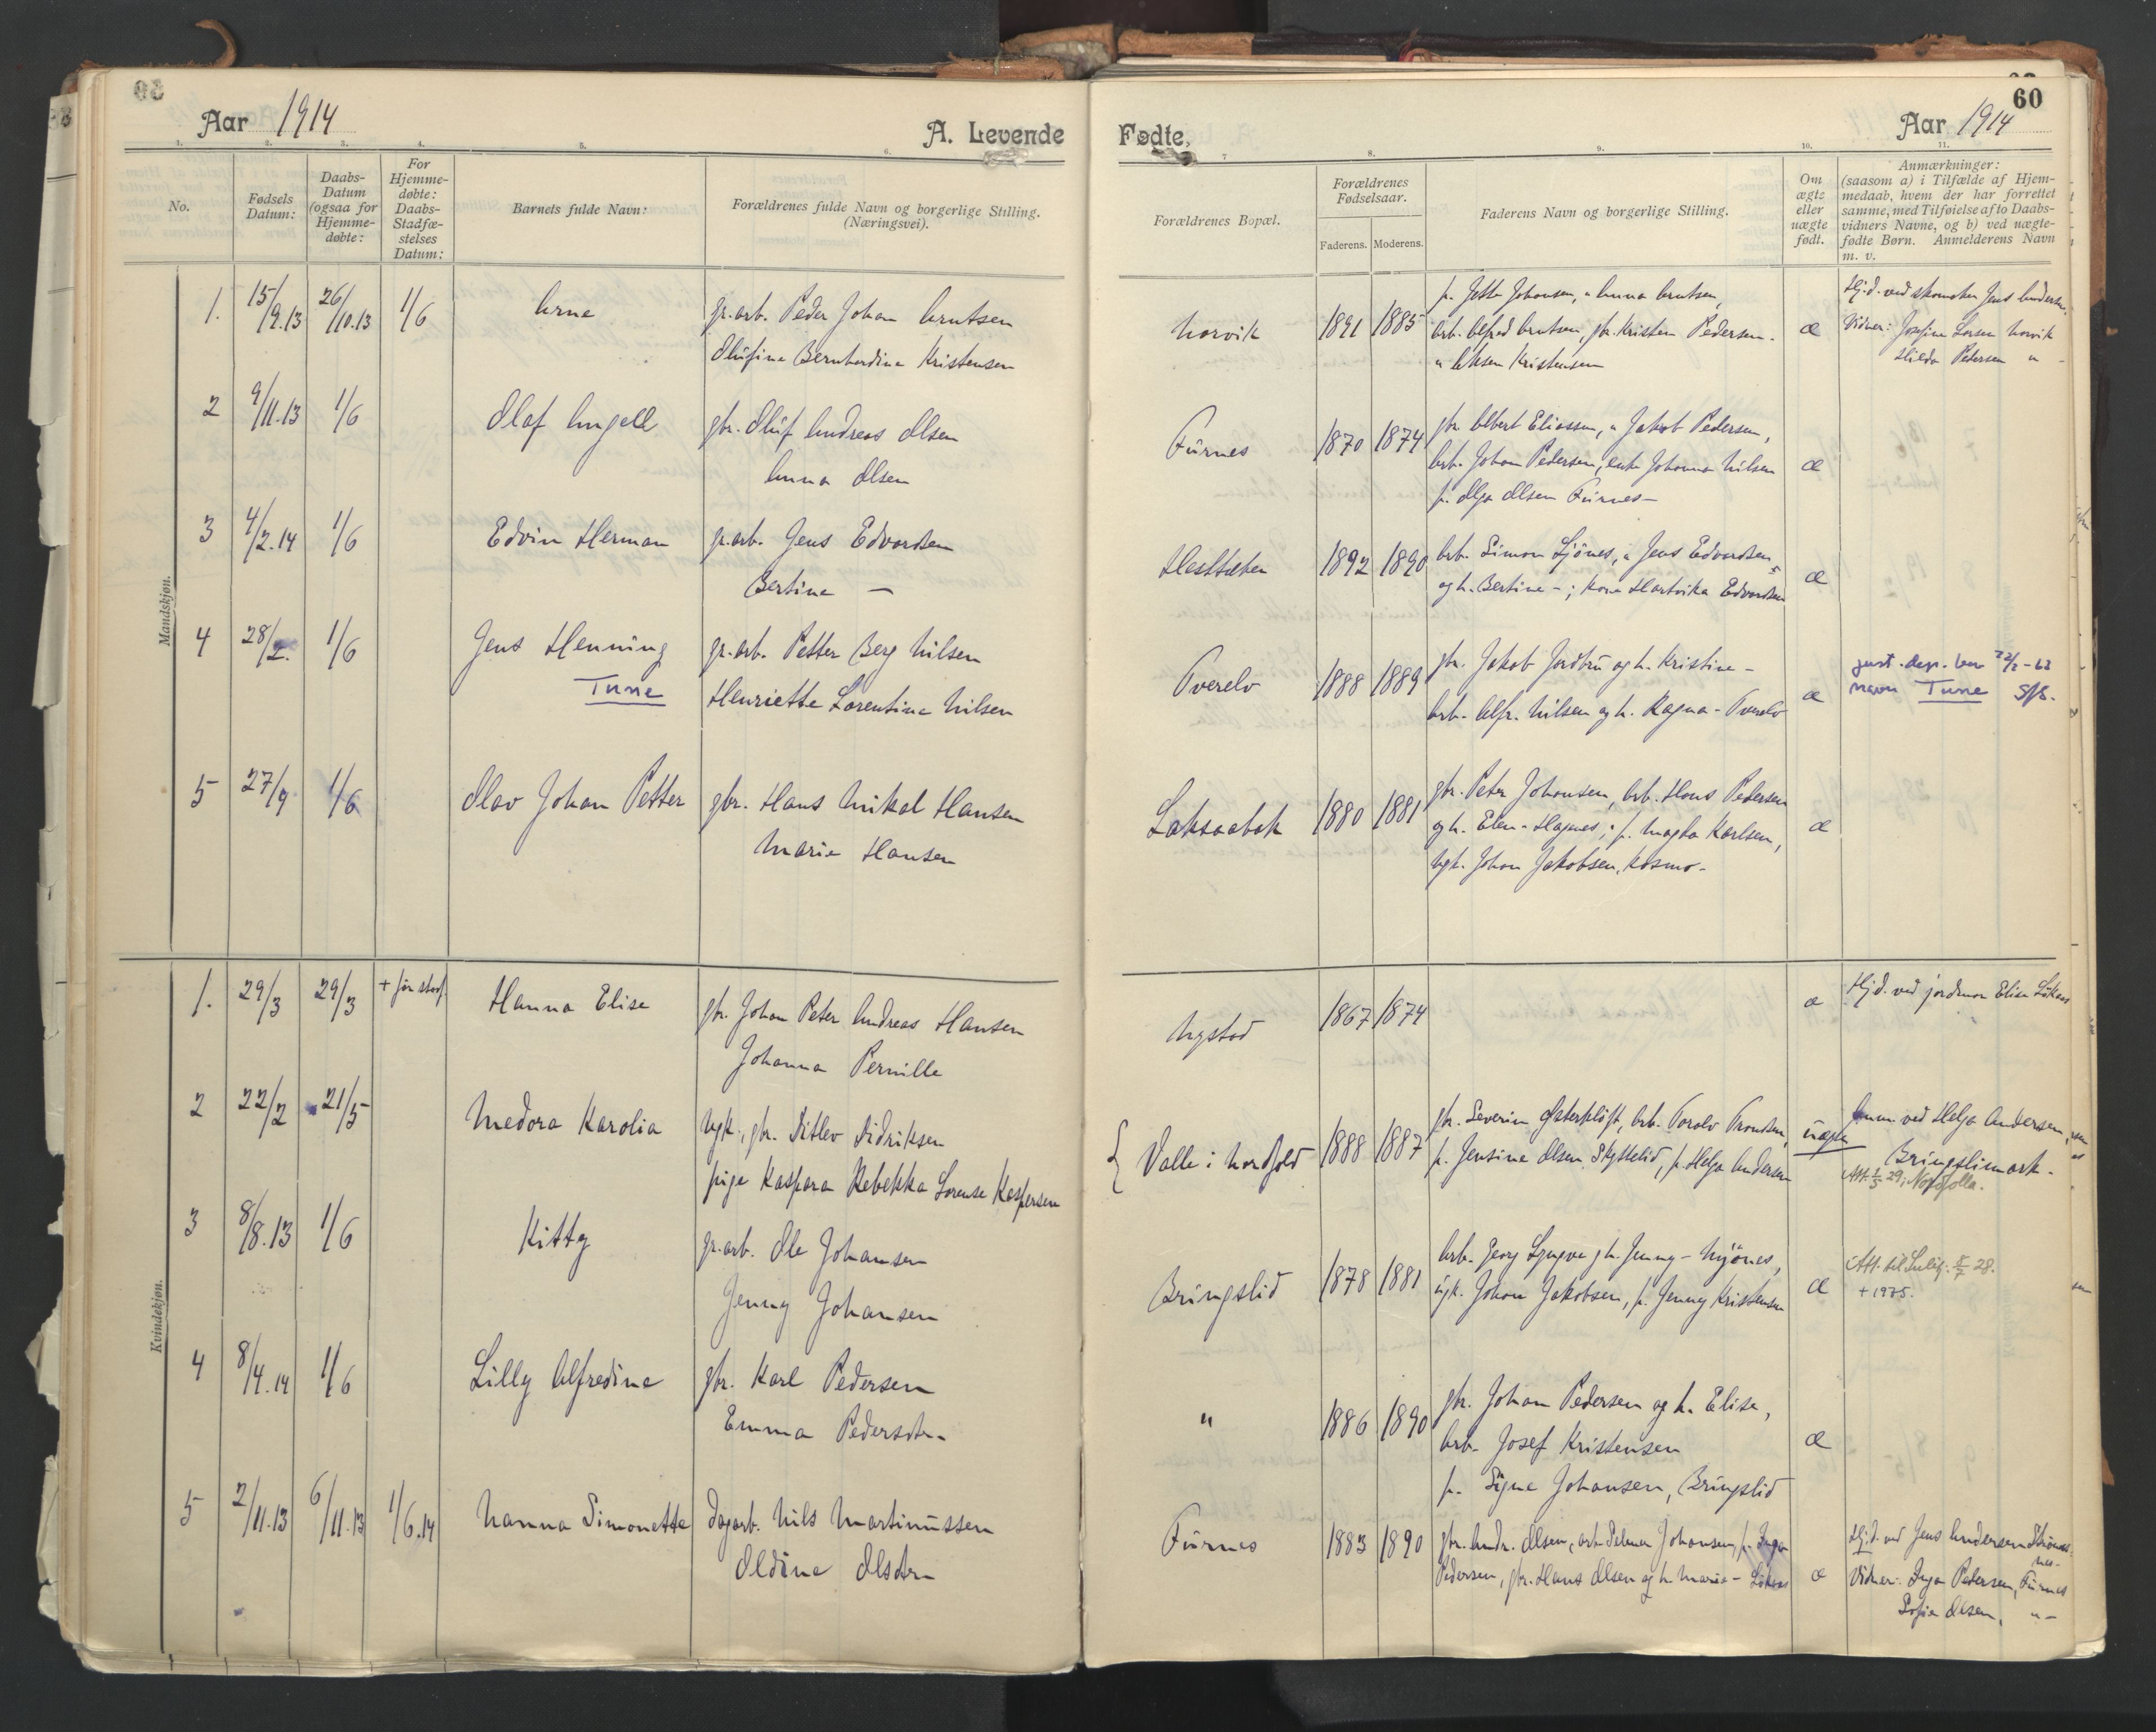 60
Aar 1914
A. Levende Fødte,
Aar 1914
60
1. 2. 3. 4. 5. 6. 7 8. 9. 10. 11.
No.
Fødsels Datum:
Daabs-Datum (ogsaa for Hjemme-døbte:
For Hjemme-døbte: Daabs-Stadfæ-stelses Datum:
Barnets fulde Navn:
Forældrenes fulde Navn og borgerlige Stilling. (Næringsvei).
Forældrenes Bopæl.
Forældrenes Fødselsaar.
Faderens. Moderens.
Faderens Navn og borgerlige Stilling.
Om ægte eller uægte født.
Anmærkninger:
(saasom a) i Tilfælde af Hjem-
medaab, hvem der har forrettet
samme, med Tilføielse af to Daabs-
vidners Navne, og b) ved uægte-
fødte Børn. Anmelderens Navn
m. v.
Mandskjøn.
1. 15/9.13 26/10.13 1/6 Arne gr.arb. Peder Johan Arntsen
Olufine Bernhardine Kristensen
Norvik 1891 1885 p. Jette Johansen, " Anna Arntsen,
arb. Alfred Arntsen, gbr. Kristen Pedersen.
" Aksen Kristensen
æ
Hj.d. ved skomaker Jens Andersen.
Vidner: Josefine Larsen Norvik
Hilda Pedersen " -
2 9/11.13 1/6 Olaf Angell gbr. Oluf Andreas Olsen
Anna Olsen
Furnes 1870 1874 gbr. Albert Eliassen, " Jakob Pedersen,
arb. Johan Pedersen, enke Johanna Nilsen
p. Olga Olsen Furnes -
æ
3 4/2.14 1/6 Edvin Herman gr.arb. Jens Edvardsen
Bertine -
Hestsæter 1892 1890 arb. Simon Sjønes, " Jens Edvardsen
og h. Bertine - ; kone Hartvika Edvardsen
æ
4 28/2. 1/6 Jens Henning gr.arb. Petter Berg Nilsen
Tune
Henriette Lorentine Nilsen
Tverelv 1888 1889 gbr. Jakob Jordbru og h. Kristine -
arb. Alfr. Nilsen og h. Ragna - Tverelv
æ
just. dep. bev 22/2 - 62
navn Tune
5 27/4 1/6 Olav Johan Petter gbr. Hans Mikal Hansen
Marie Hansen
Laksaabak 1880 1881 gbr. Peter Johansen, arb. Hans Pedersen
og h. Elen - Hagnes; p. Magda Karlsen,
ugk. Johan Jakobsen, Kosmo -
æ
Kvindekjøn.
1. 29/3 29/3 + før stadf. Hanna Elise gbr. Johan Peter Andreas Hansen
Johanna Pernille
Nystad 1867 1874
æ
Hj.d. ved jordmor Elise Løkaas
2 22/2 21/5 Medora Karolia ugk., gbr. Ditlev Didriksen
pige Kaspara Rebekka Lorense Kaspersen
Valle i Nordfold 1888 1887 gbr. Severin Østerkløft, arb. Torolv Trondsen,
p. Jensine Olsen Skjttelid, p. Helga Andersen
uægte
Anm. ved Helga Andersen,
Bringslimark.
Att. 1/5 29; Nordfolla.
3 8/8.13 1/6 Kitty gr.arb. Ole Johansen
Jenny Johansen
Bringslid 1878 1881 arb. Georg Lyngve og h. Jenny - Nyønes,
ugk. Johan Jakobsen, p. Jenny Kristensen
æ
Att. til Sulitj. 8/7 28.
+ 1975.
4 8/4.14 1/6 Lilly Alfredine gbr. Karl Pedersen
Emma Pedersdtr.
" 1886 1890 gbr. Johan Pedersen og h. Elise,
arb. Josef Kristensen
p. Signe Johansen, Bringslid
æ
5 2/11.13 6/11.13 1/6.14 Nanna Simonette dagarb. Nils Martinussen
Oldine Olsdtr.
Furnes 1883 1890 gbr. Andr. Olsen, arb. Johansen, p. Inga
Pedersen, gbr. Hans Olsen og h. Marie - Løkaas
æ
Hj.d. ved Jens Andersen
Vidner: Inga Pedersen, Furnes
Sofie Olsen, " -